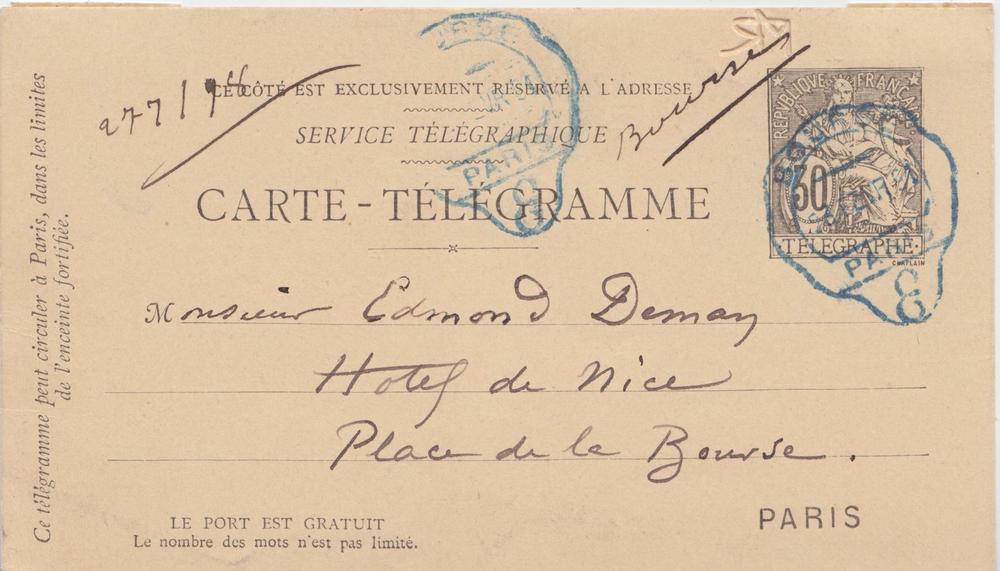 CE CÔTÉ EST EXCLUSIVEMENT RÉSERVÉ A L'ADRESSE
SERVICE TÉLÉGRAPHIQUE
Bourse
CARTE-TÉLÉGRAMME
PARIS
RÉPUBLIQUE FRANÇAISE
30
TÉLÉGRAPHE
CHAPLAIN
PARIS
Monsieur Edmond Deman
Hotel de Nice
Place de la Bourse.
PARIS
LE PORT EST GRATUIT
Le nombre des mots n'est pas limité.
Ce télégramme peut circuler à Paris, dans les limites
de l'enceinte fortifiée.